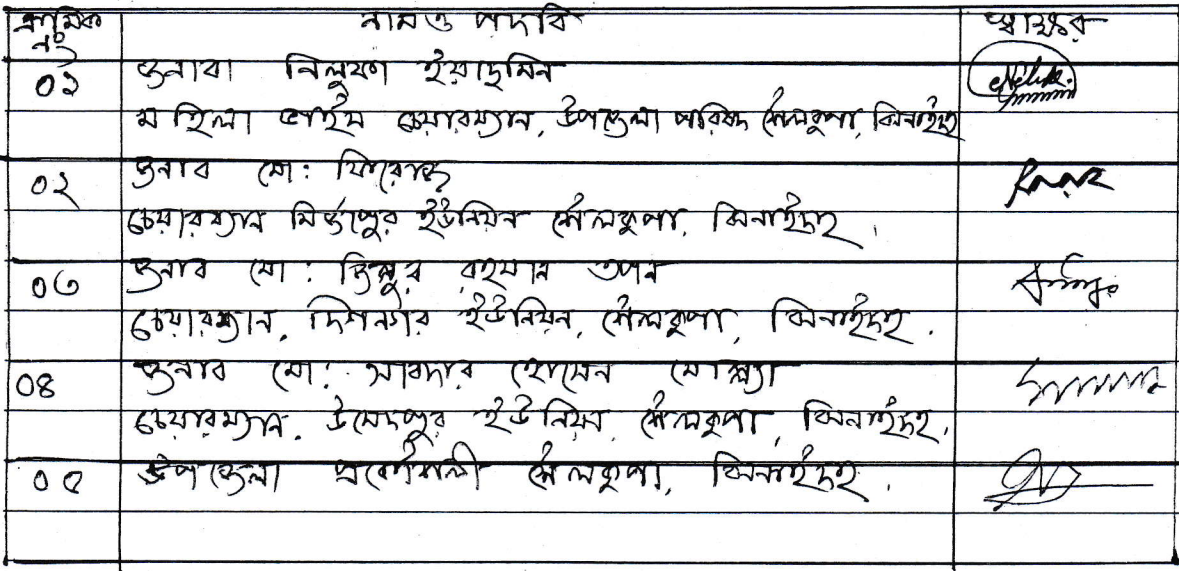 ক্রমিক নং নাম ও পদবি স্বাক্ষর
০১ জনাবা নিলুফা ইয়াছমিন
মহিলা ভাইস চেয়ারম্যান, উপজেলা পরিষদ শৈলকুপা, ঝিনাইদহ
০২ জনাব মো: ফিরোজ
চেয়ারম্যান মির্জাপুর ইউনিয়ন শৈলকুপা, ঝিনাইদহ,
০৩ জনাব মো: জিল্লুর রহমান তপন
চেয়ারম্যান, দিগনগর ইউনিয়ন, শৈলকুপা, ঝিনাইদহ.
০৪ জনাব মো: সাবদার হোসেন মোল্ল্যা
চেয়ারম্যান, উমেদপুর ইউনিয়ন, শৈলকুপা, ঝিনাইদহ.
০৫ উপজেলা প্রকৌশলী শৈলকুপা, ঝিনাইদহ.